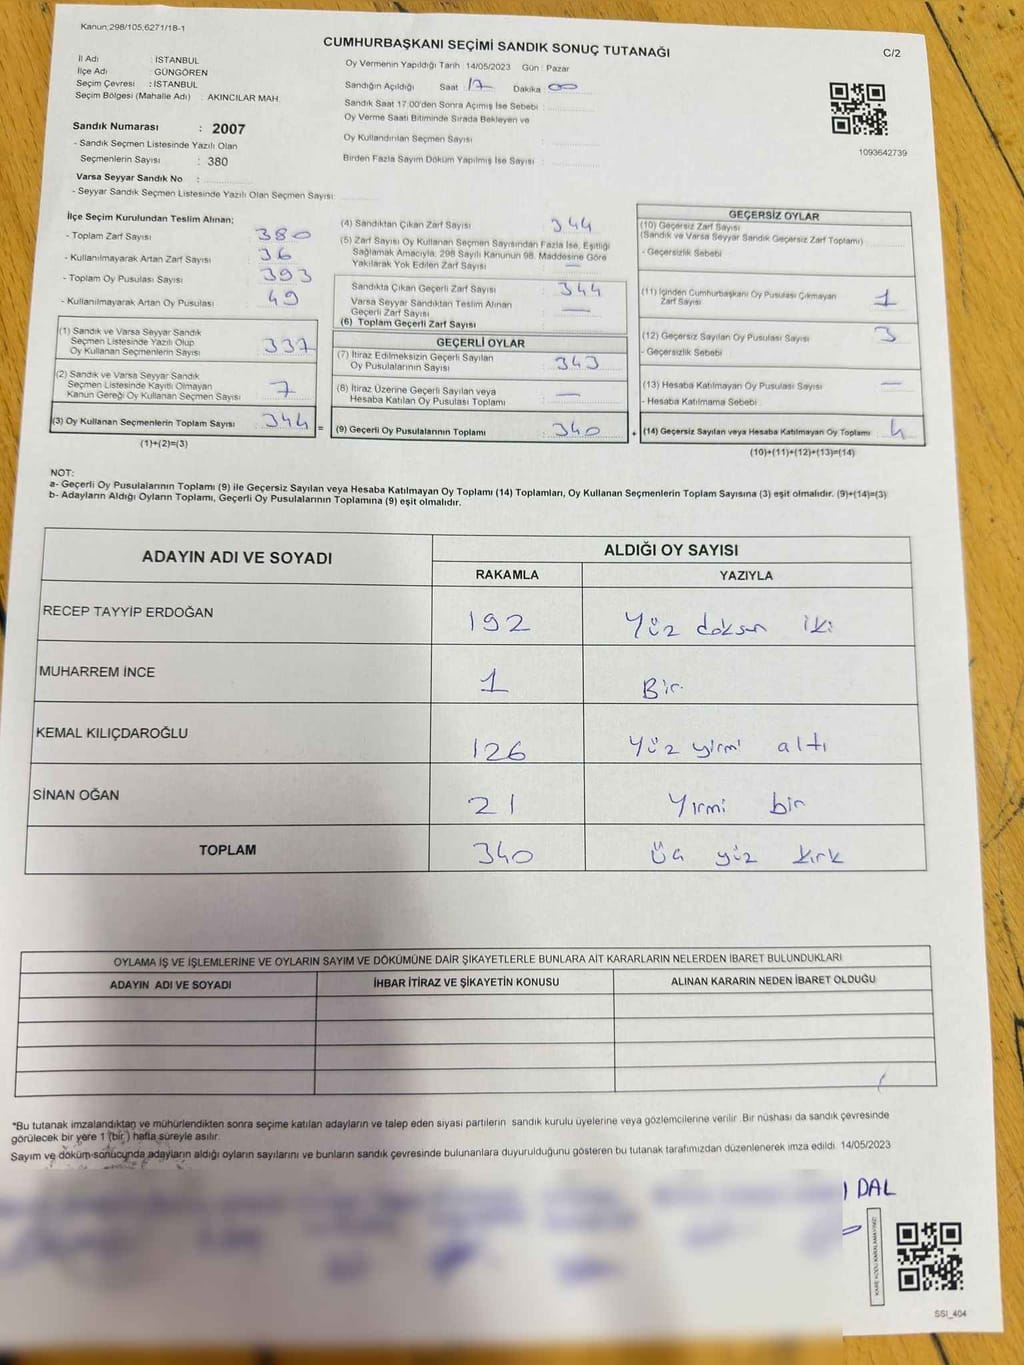 Kanun,298/105,6271/18-1
CUMHURBAŞKANI SEÇİMİ SANDIK SONUÇ TUTANAĞI
C/2
İl Adı : İSTANBUL
İlçe Adı : GÜNGÖREN
Seçim Çevresi : İSTANBUL
Seçim Bölgesi (Mahalle Adı) : AKINCILAR MAH.
Sandık Numarası : 2007
- Sandık Seçmen Listesinde Yazılı Olan
Seçmenlerin Sayısı : 380
Varsa Seyyar Sandık No :
- Seyyar Sandık Seçmen Listesinde Yazılı Olan Seçmen Sayısı:
Oy Vermenin Yapıldığı Tarih 14/05/2023 Gün : Pazar
Sandığın Açıldığı Saat : 17 Dakika : 00
Sandık Saat 17.00'den Sonra Açımış İse Sebebi :
Oy Verme Saati Bitiminde Sırada Bekleyen ve
Oy Kullandırılan Seçmen Sayısı :
Birden Fazla Sayım Döküm Yapılmış İse Sayısı :
1093642739
İlçe Seçim Kurulundan Teslim Alınan;
- Toplam Zarf Sayısı : 380
- Kullanılmayarak Artan Zarf Sayısı : 36
- Toplam Oy Pusulası Sayısı : 393
- Kullanılmayarak Artan Oy Pusulası : 49
(1) Sandık ve Varsa Seyyar Sandık
Seçmen Listesinde Yazılı Olup
Oy Kullanan Seçmenlerin Sayısı : 337
(2) Sandık ve Varsa Seyyar Sandık
Seçmen Listesinde Kayıtlı Olmayan
Kanun Gereği Oy Kullanan Seçmen Sayısı : 7
(3) Oy Kullanan Seçmenlerin Toplam Sayısı : 344 =
(1)+(2)=(3)
(4) Sandıktan Çıkan Zarf Sayısı : 344
(5) Zarf Sayısı Oy Kullanan Seçmen Sayısından Fazla İse, Eşitliği
Sağlamak Amacıyla, 298 Sayılı Kanunun 98. Maddesine Göre
Yakılarak Yok Edilen Zarf Sayısı : —
Sandıkta Çıkan Geçerli Zarf Sayısı : 344
Varsa Seyyar Sandıktan Teslim Alınan
Geçerli Zarf Sayısı : —
(6) Toplam Geçerli Zarf Sayısı
GEÇERLİ OYLAR
(7) İtiraz Edilmeksizin Geçerli Sayılan
Oy Pusulalarının Sayısı : 343
(8) İtiraz Üzerine Geçerli Sayılan veya
Hesaba Katılan Oy Pusulası Toplamı : —
(9) Geçerli Oy Pusulalarının Toplamı : 340 +
GEÇERSİZ OYLAR
(10) Geçersiz Zarf Sayısı
(Sandık ve Varsa Seyyar Sandık Geçersiz Zarf Toplamı)
- Geçersizlik Sebebi :
(11) İçinden Cumhurbaşkanı Oy Pusulası Çıkmayan
Zarf Sayısı : 1
(12) Geçersiz Sayılan Oy Pusulası Sayısı : 3
- Geçersizlik Sebebi :
(13) Hesaba Katılmayan Oy Pusulası Sayısı : —
- Hesaba Katılmama Sebebi :
(14) Geçersiz Sayılan veya Hesaba Katılmayan Oy Toplamı : 4
(10)+(11)+(12)+(13)=(14)
NOT:
a- Geçerli Oy Pusulalarının Toplamı (9) ile Geçersiz Sayılan veya Hesaba Katılmayan Oy Toplamı (14) Toplamları, Oy Kullanan Seçmenlerin Toplam Sayısına (3) eşit olmalıdır. (9)+(14)=(3)
b- Adayların Aldığı Oyların Toplamı, Geçerli Oy Pusulalarının Toplamına (9) eşit olmalıdır.
ADAYIN ADI VE SOYADI
ALDIĞI OY SAYISI
RAKAMLA YAZIYLA
RECEP TAYYİP ERDOĞAN 192 Yüz doksan iki
MUHARREM İNCE 1 Bir
KEMAL KILIÇDAROĞLU 126 Yüz yirmi altı
SİNAN OĞAN 21 Yirmi bir
TOPLAM 340 Üç yüz kırk
OYLAMA İŞ VE İŞLEMLERİNE VE OYLARIN SAYIM VE DÖKÜMÜNE DAİR ŞİKAYETLERLE BUNLARA AİT KARARLARIN NELERDEN İBARET BULUNDUKLARI
ADAYIN ADI VE SOYADI İHBAR İTİRAZ VE ŞİKAYETİN KONUSU ALINAN KARARIN NEDEN İBARET OLDUĞU
*Bu tutanak imzalandıktan ve mühürlendikten sonra seçime katılan adayların ve talep eden siyasi partilerin sandık kurulu üyelerine veya gözlemcilerine verilir. Bir nüshası da sandık çevresinde
görülecek bir yere 1 (bir ) hafta süreyle asılır.
Sayım ve döküm sonucunda adayların aldığı oyların sayılarını ve bunların sandık çevresinde bulunanlara duyurulduğunu gösteren bu tutanak tarafımızdan düzenlenerek imza edildi. 14/05/2023
DAL
KARE KODU KARALAMAYINIZ!
SSI_404